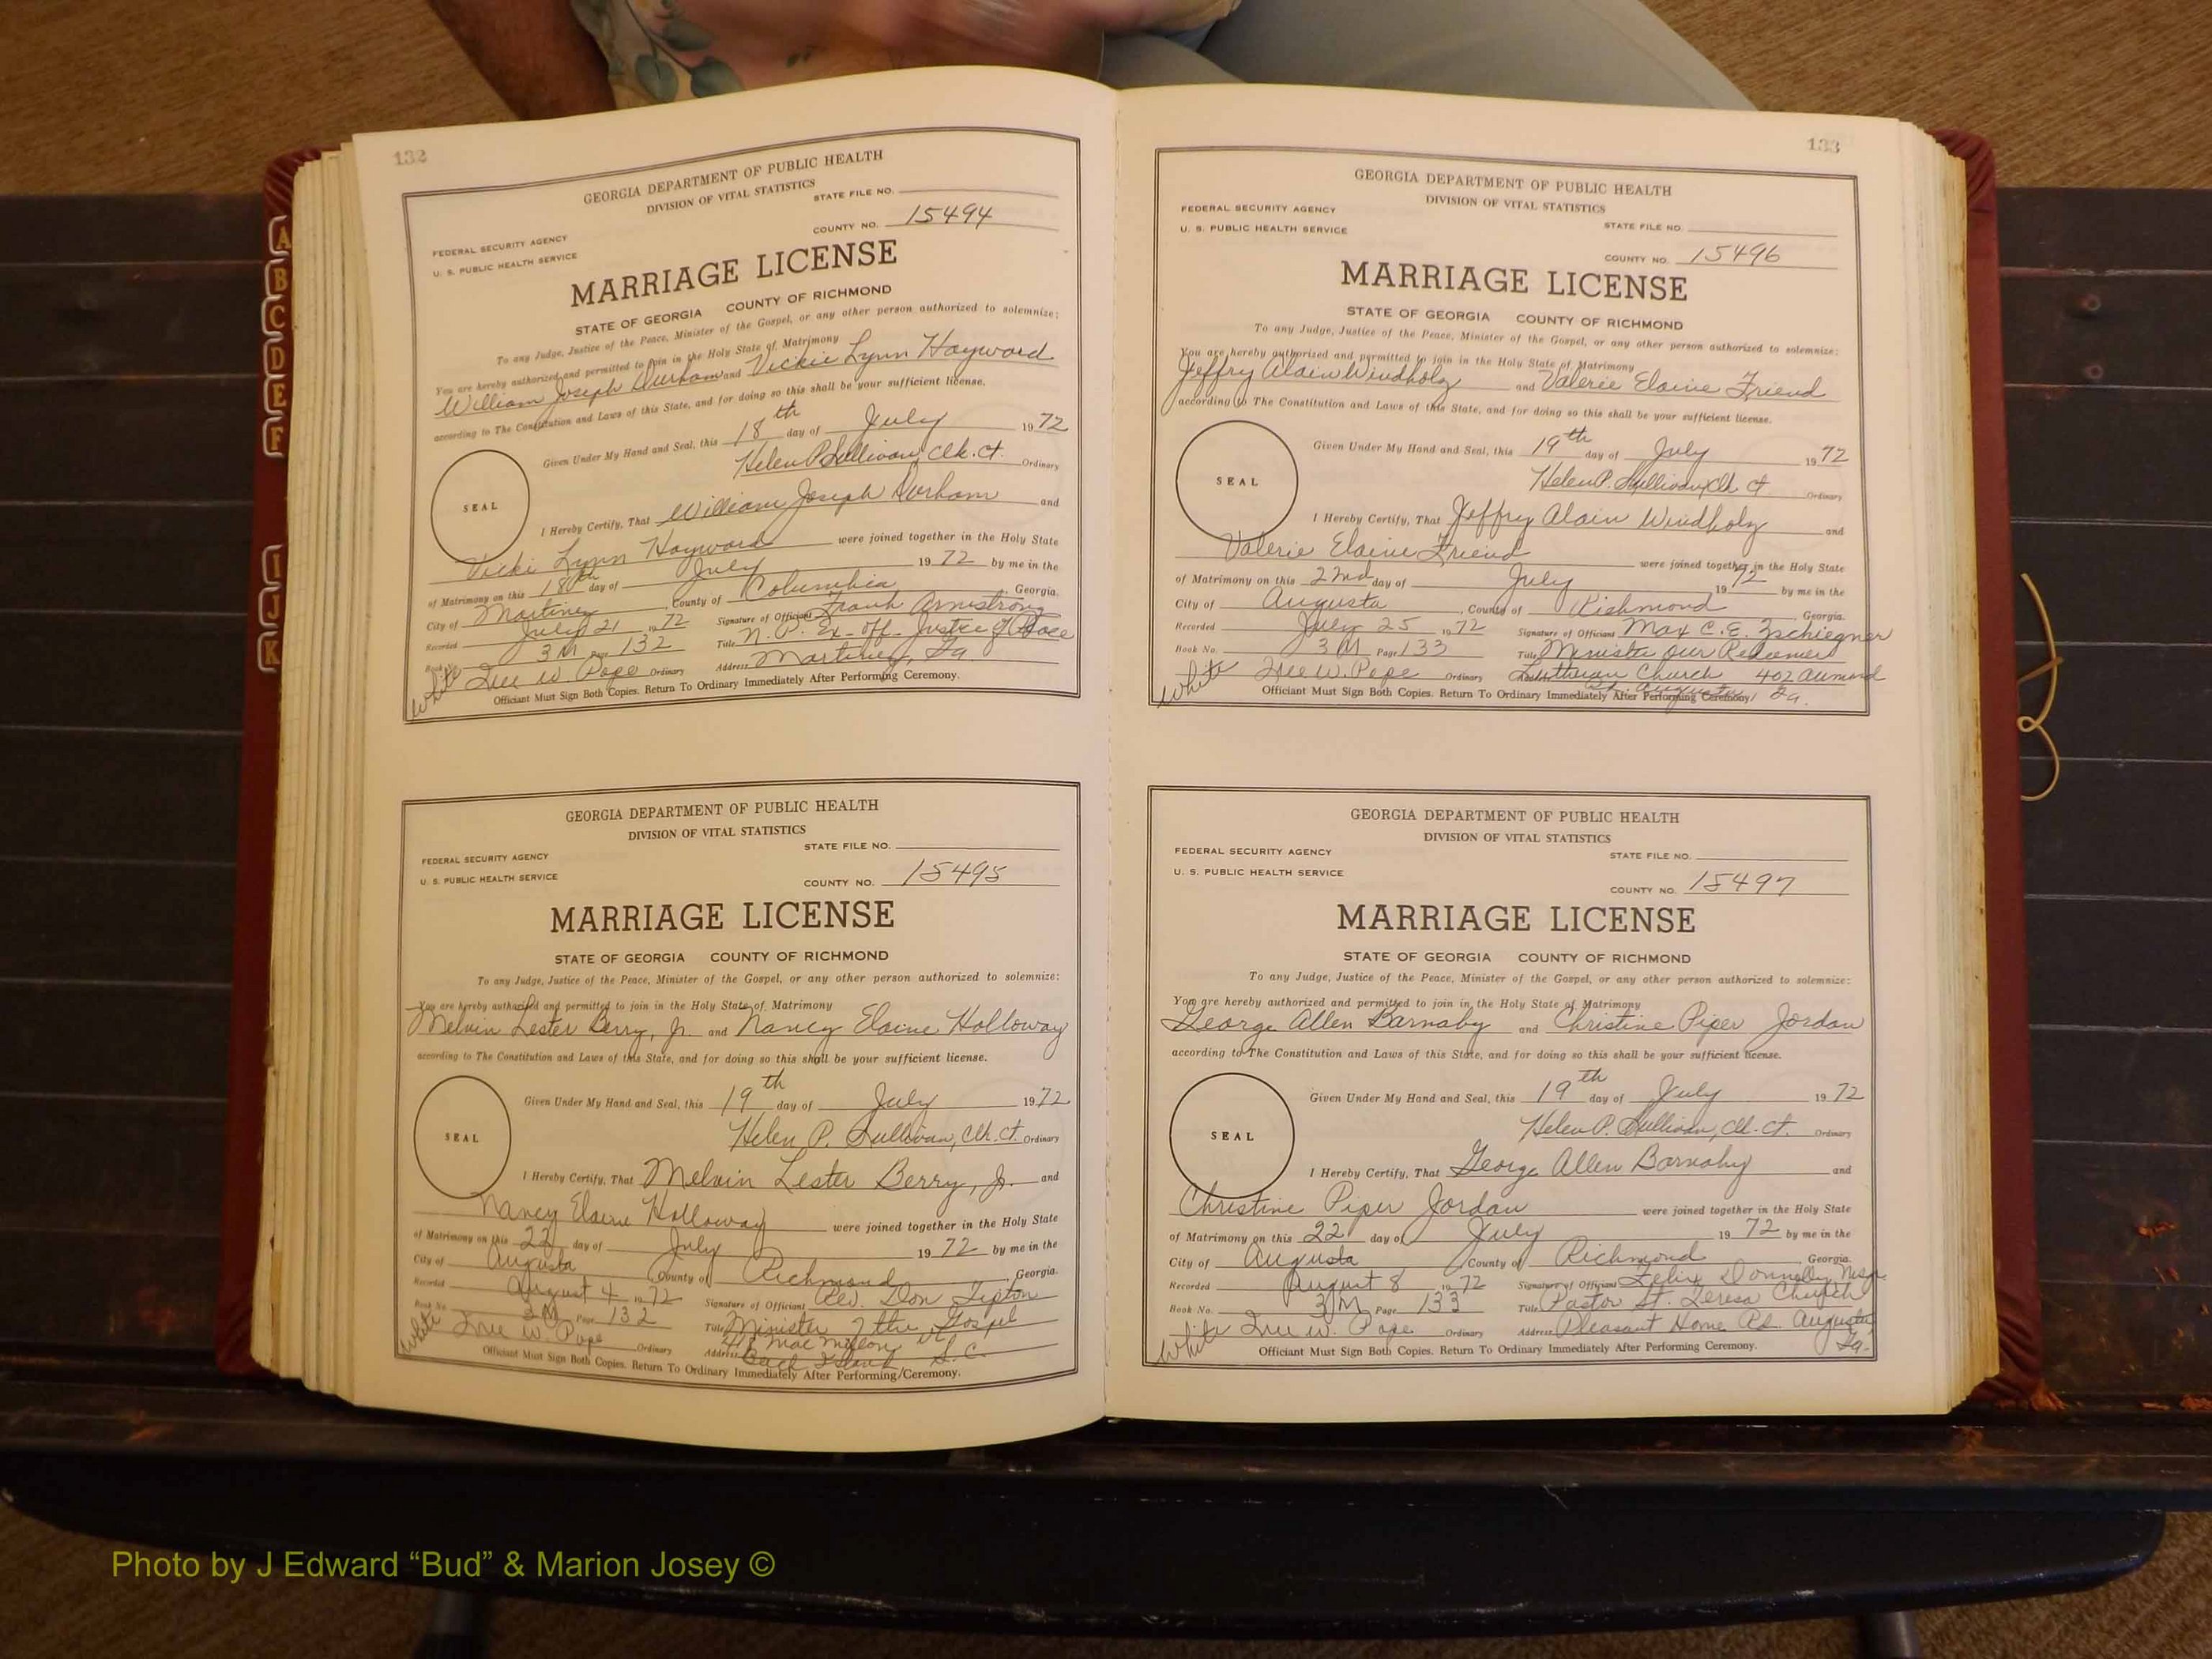 132
GEORGIA DEPARTMENT OF PUBLIC HEALTH
DIVISION OF VITAL STATISTICS
STATE FILE NO.
COUNTY NO. 15494
FEDERAL SECURITY AGENCY
U. S. PUBLIC HEALTH SERVICE
MARRIAGE LICENSE
STATE OF GEORGIA COUNTY OF RICHMOND
To any Judge, Justice of the Peace, Minister of the Gospel, or any other person authorized to solemnize:
You are hereby authorized and permitted to join in the Holy State of Matrimony
William Joseph Durham and Vickie Lynn Hayward
according to The Constitution and Laws of this State, and for doing so this shall be your sufficient license.
Given Under My Hand and Seal, this 18th day of July 1972
Helen P. Sullivan, Clk. Ct. Ordinary
SEAL
I Hereby Certify, That William Joseph Durham and
Vicki Lynn Hayward were joined together in the Holy State
of Matrimony on this 18th day of July 1972 by me in the
City of Martinez, County of Columbia, Georgia.
Recorded July 21 1972 Signature of Officiant Frank Armstrong
Book No. 3M Page 132 Title N. P. Ex-Off. Justice of Peace
White W. Pope Ordinary Address Martinez, Ga.
Officiant Must Sign Both Copies. Return To Ordinary Immediately After Performing Ceremony.
GEORGIA DEPARTMENT OF PUBLIC HEALTH
DIVISION OF VITAL STATISTICS
STATE FILE NO.
FEDERAL SECURITY AGENCY
U. S. PUBLIC HEALTH SERVICE
COUNTY NO. 15495
MARRIAGE LICENSE
STATE OF GEORGIA COUNTY OF RICHMOND
To any Judge, Justice of the Peace, Minister of the Gospel, or any other person authorized to solemnize:
You are hereby authorized and permitted to join in the Holy State of Matrimony
Melvin Lester Berry, Jr. and Nancy Elaine Holloway
according to The Constitution and Laws of this State, and for doing so this shall be your sufficient license.
Given Under My Hand and Seal, this 19th day of July 1972
Helen P. Sullivan, Clk. Ct. Ordinary
SEAL
I Hereby Certify, That Melvin Lester Berry, Jr. and
Nancy Elaine Holloway were joined together in the Holy State
of Matrimony on this 22 day of July 1972 by me in the
City of Augusta County of Richmond, Georgia.
Recorded August 4 1972 Signature of Officiant Rev. Don Tipton
Book No. 3M Page 132 Title Minister of the Gospel
White W. Pope Ordinary Address
S.C.
Officiant Must Sign Both Copies. Return To Ordinary Immediately After Performing Ceremony.
133
GEORGIA DEPARTMENT OF PUBLIC HEALTH
DIVISION OF VITAL STATISTICS
FEDERAL SECURITY AGENCY
U. S. PUBLIC HEALTH SERVICE
STATE FILE NO.
COUNTY NO. 15496
MARRIAGE LICENSE
STATE OF GEORGIA COUNTY OF RICHMOND
To any Judge, Justice of the Peace, Minister of the Gospel, or any other person authorized to solemnize:
You are hereby authorized and permitted to join in the Holy State of Matrimony
Jeffry Alain Windholz and Valerie Elaine Friend
according to The Constitution and Laws of this State, and for doing so this shall be your sufficient license.
Given Under My Hand and Seal, this 19th day of July 1972
Helen P. Sullivan, Clk Ct Ordinary
SEAL
I Hereby Certify, That Jeffry Alain Windholz and
Valerie Elaine Friend were joined together in the Holy State
of Matrimony on this 22nd day of July 1972 by me in the
City of Augusta, County of Richmond, Georgia.
Recorded July 25 1972 Signature of Officiant Max C. E. Zschiegner
Book No. 3M Page 133 Title Minister Our Redeemer
White W. Pope Ordinary Lutheran Church 402 Aumond
Rd. Augusta, Ga.
Officiant Must Sign Both Copies. Return To Ordinary Immediately After Performing Ceremony.
GEORGIA DEPARTMENT OF PUBLIC HEALTH
DIVISION OF VITAL STATISTICS
FEDERAL SECURITY AGENCY
U. S. PUBLIC HEALTH SERVICE
STATE FILE NO.
COUNTY NO. 15497
MARRIAGE LICENSE
STATE OF GEORGIA COUNTY OF RICHMOND
To any Judge, Justice of the Peace, Minister of the Gospel, or any other person authorized to solemnize:
You are hereby authorized and permitted to join in the Holy State of Matrimony
George Allen Barnaby and Christine Piper Jordan
according to The Constitution and Laws of this State, and for doing so this shall be your sufficient license.
Given Under My Hand and Seal, this 19th day of July 1972
Helen P. Sullivan, Clk. Ct. Ordinary
SEAL
I Hereby Certify, That George Allen Barnaby and
Christine Piper Jordan were joined together in the Holy State
of Matrimony on this 22 day of July 1972 by me in the
City of Augusta County of Richmond, Georgia.
Recorded August 8 1972 Signature of Officiant Felix Donnelly, Msgr.
Book No. 3M Page 133 Title Pastor St. Teresa Church
White W. Pope Ordinary Address Pleasant Home Rd. Augusta,
Ga.
Officiant Must Sign Both Copies. Return To Ordinary Immediately After Performing Ceremony.
A
B
C
D
E
F
I
J
K
Photo by J Edward “Bud” & Marion Josey ©